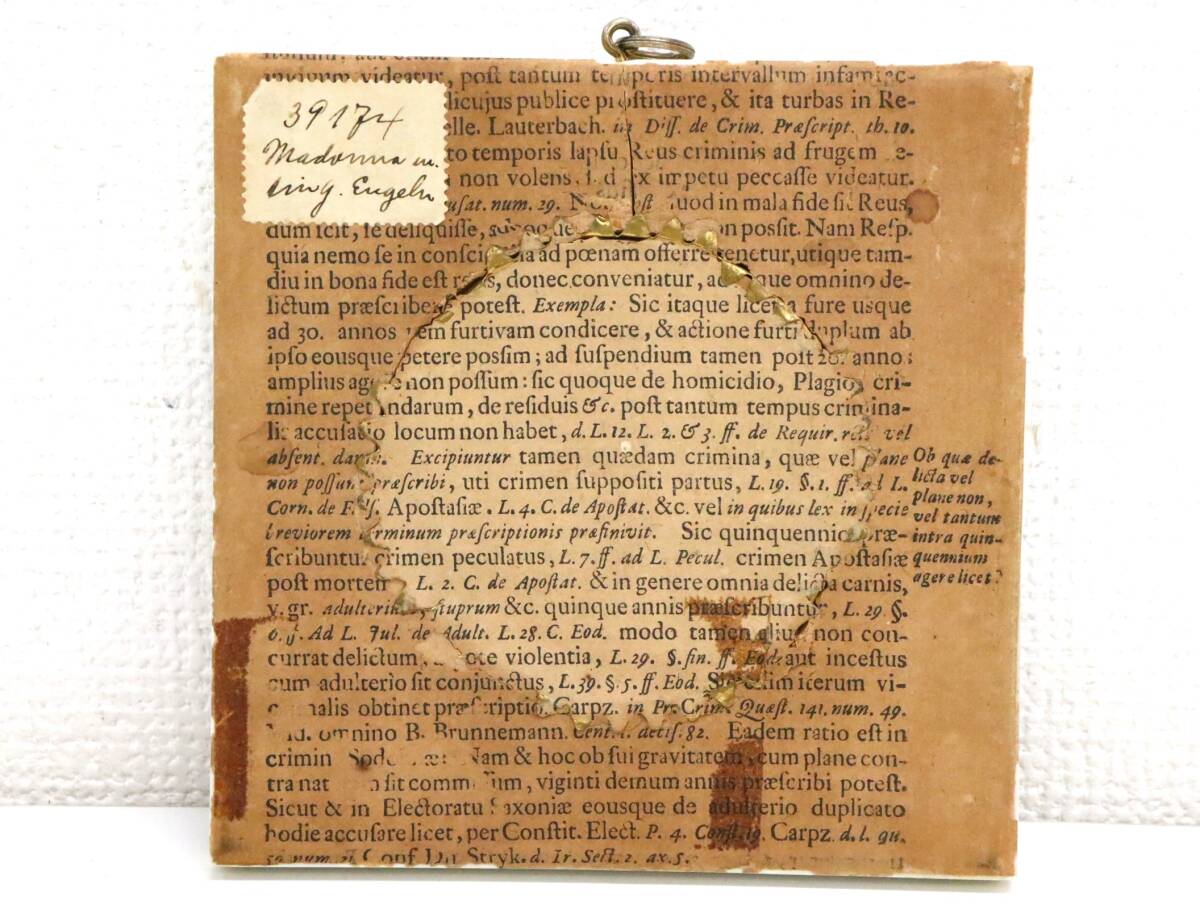 39174
Madonna m.
sing. Engeln
videatur, post tantum temporis intervallum
licujus publice prostituere, & ita turbas in Re-
elle. Lauterbach. in Diss. de Crim. Præscript. th. 10.
to temporis lapsu Reus criminis ad frugem
non volens, sed ex impetu peccasse videatur.
usat. num. 29. quod in mala fide sit Reus,
dum scit, se deliquisse, non possit. Nam Resp.
quia nemo se in conscientia ad pœnam offerre tenetur, utique tam-
diu in bona fide est reus, donec conveniatur, adeoque omnino de-
lictum præscribere potest. Exempla: Sic itaque licet a fure usque
ad 30. annos rem furtivam condicere, & actione furti duplum ab
ipso eousque petere possim; ad suspendium tamen post 20. annos
amplius agere non possum: sic quoque de homicidio, Plagio, cri-
mine repetundarum, de residuis &c. post tantum tempus crimina-
lis accusatio locum non habet, d. L. 12. L. 2. & 3. ff. de Requir. reis vel
absent. damn. Excipiuntur tamen quædam crimina, quæ vel plane
non possunt præscribi, uti crimen suppositi partus, L. 19. §. 1. ff. ad L.
Corn. de Fals. Apostasiæ. L. 4. C. de Apostat. &c. vel in quibus lex in specie
breviorem terminum præscriptionis præfinivit. Sic quinquennio præ-
scribuntur crimen peculatus, L. 7. ff. ad L. Pecul. crimen Apostasiæ
post mortem L. 2. C. de Apostat. & in genere omnia delicta carnis,
v. gr. adulterium, stuprum &c. quinque annis præscribuntur, L. 29. §.
6. ff. Ad L. Jul. de Adult. L. 28. C. Eod. modo tamen aliud non con-
currat delictum, violentia, L. 29. §. fin. ff. Eod. aut incestus
cum adulterio sit conjunctus, L. 39. §. 5. ff. Eod. Sic enim iterum vi-
cennalis obtinet præscriptio, Carpz. in Pr. Crim. Quæst. 141. num. 49.
omnino B. Brunnemann. Cent. 1. decis. 82. Eadem ratio est in
crimin Nam & hoc ob sui gravitatem, cum plane con-
tra nat sit commissum, viginti demum annis præscribi potest.
Sicut & in Electoratu Saxoniæ eousque de adulterio duplicato
hodie accusare licet, per Constit. Elect. P. 4. Const. 19. Carpz. d. l. qu.
Conf. Dn. Stryk. d. Ir. Sect. 2. ax. 5.
Ob quæ de-
licta vel
plane non,
vel tantum
intra quin-
quennium
agere licet?